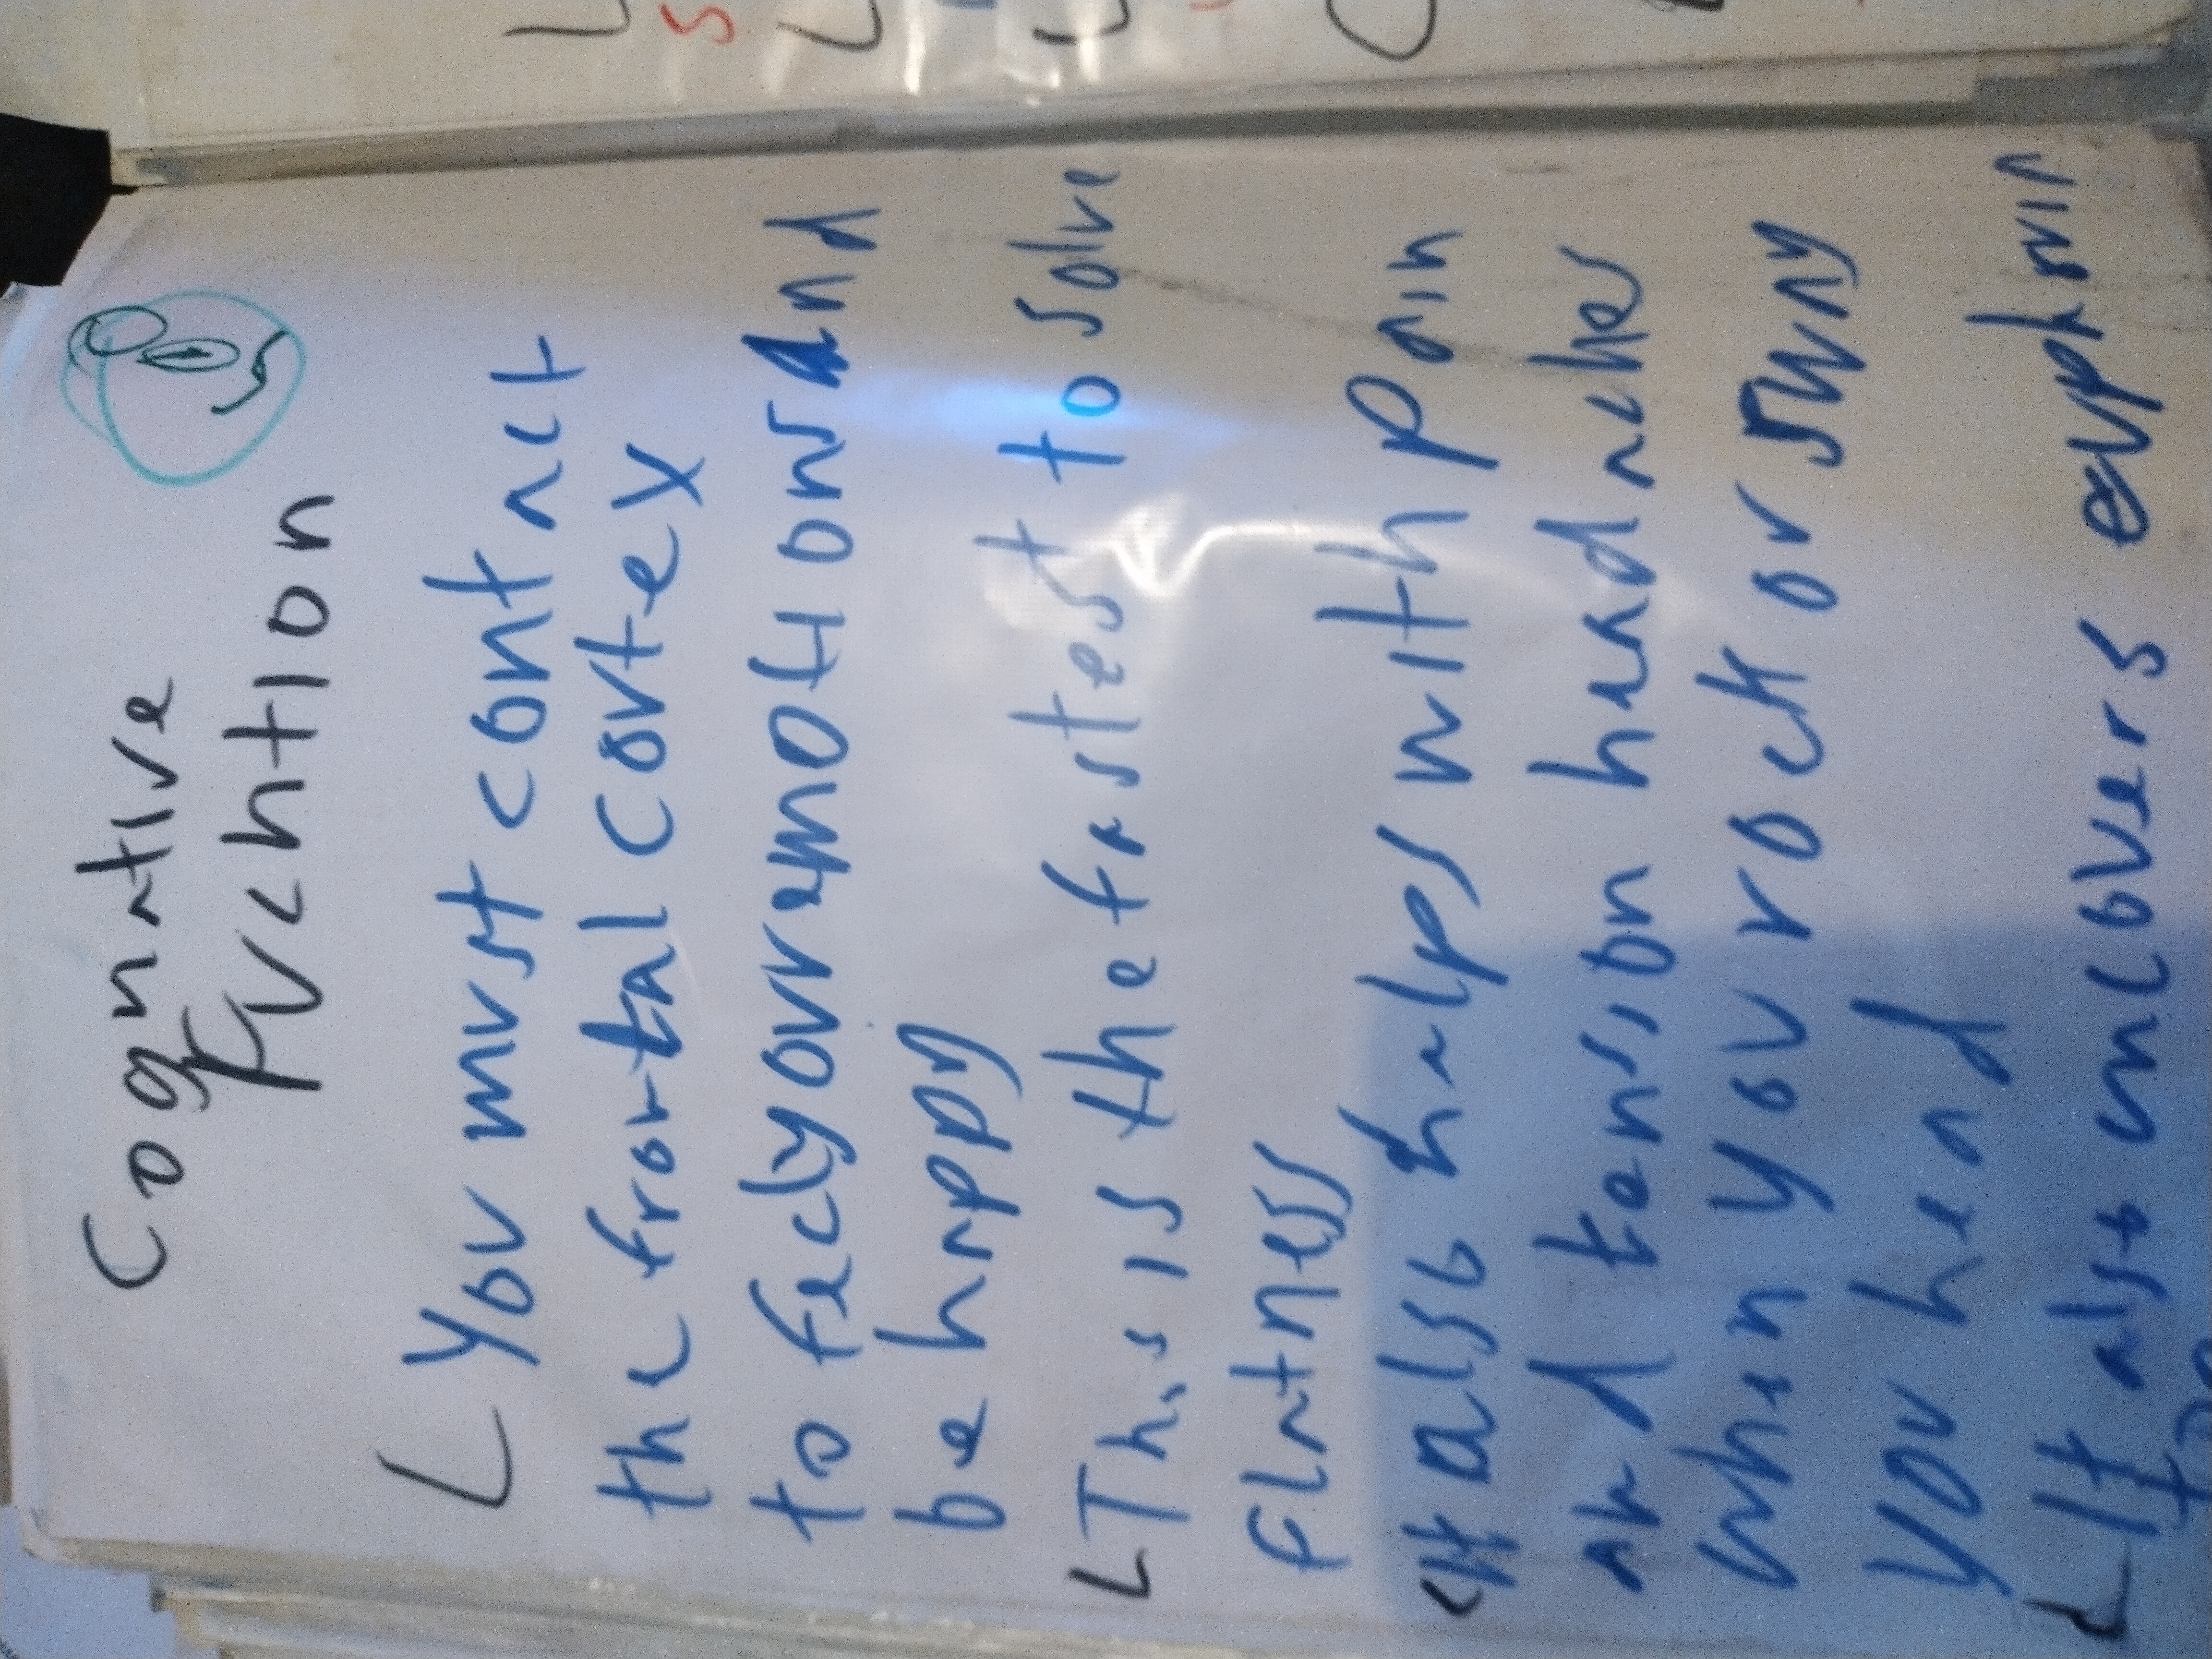 Cognative
Fvchtion
L You must contact
the frontal cortex
to fecl your emotions and
be happy
L This is the fastest to solve
flatness
L It also helps with pain
and tension headaches
when you rock or sung
you head
L It also uncovers